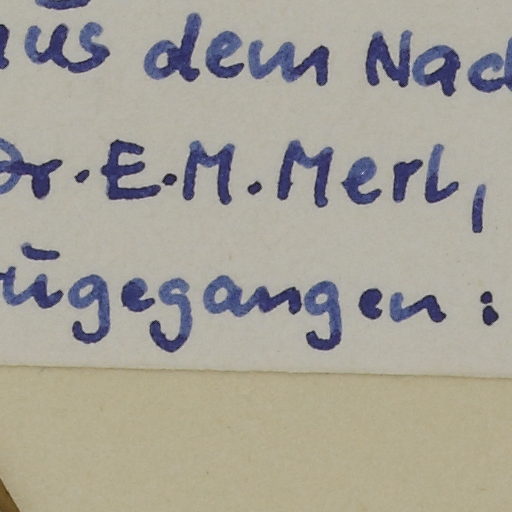 aus dem Nac
Dr. E. M. Merl,
zugegangen :